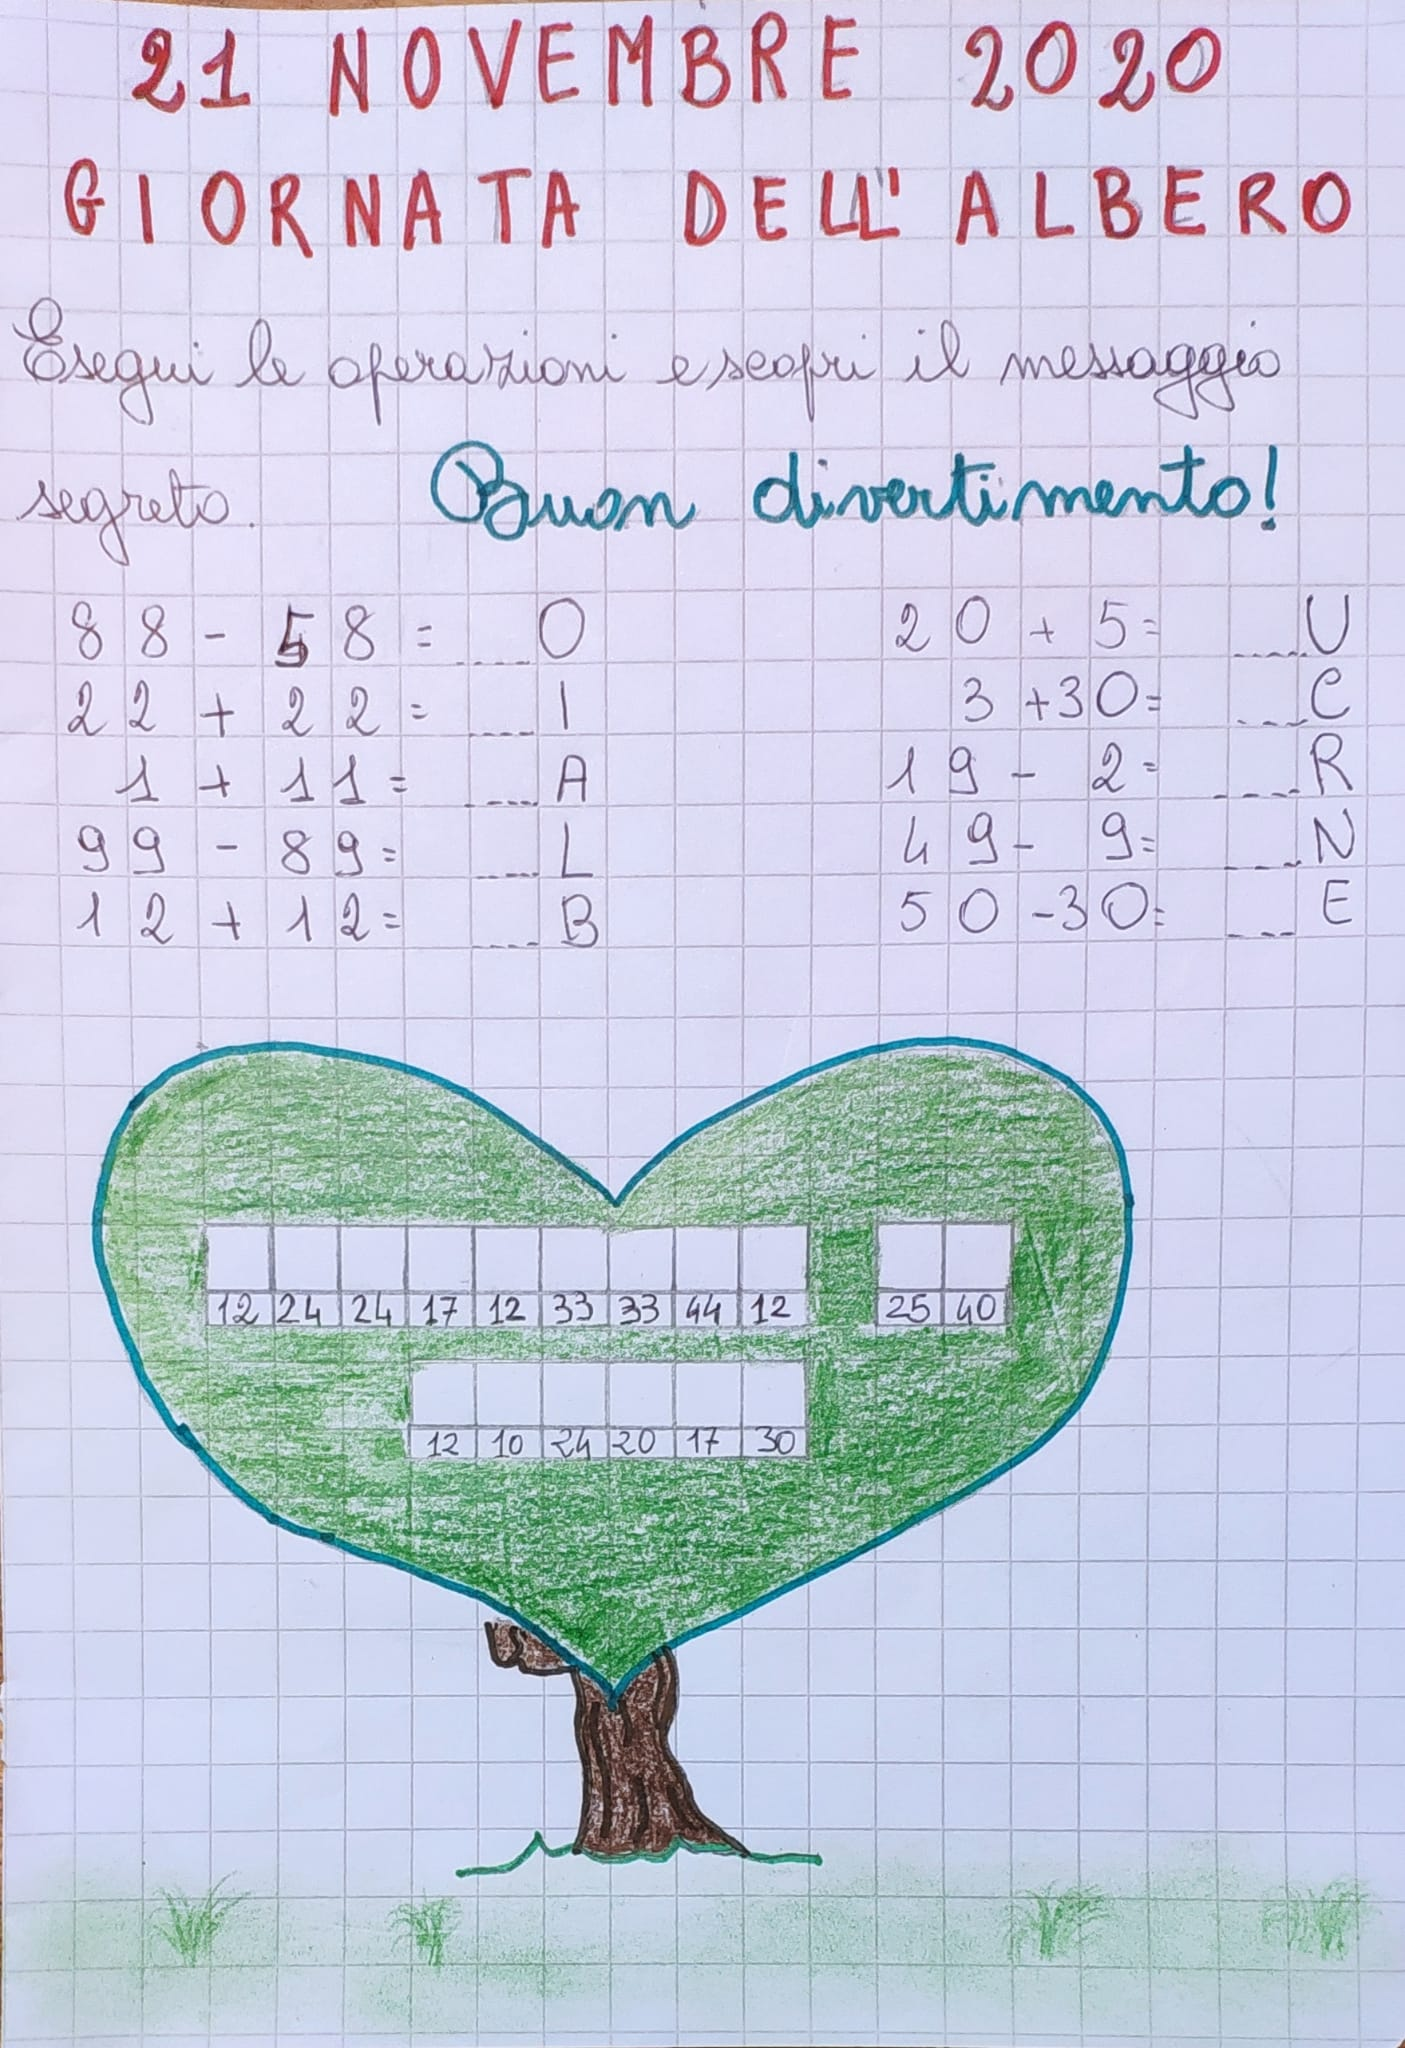 21 NOVEMBRE 2020
GIORNATA DELL'ALBERO
Esegui le operazioni e scopri il messaggio
segreto. Buon divertimento!
88 - 58 = ____ O
22 + 22 = ____ I
1 + 11 = ____ A
99 - 89 = ____ L
12 + 12 = ____ B
20 + 5 = ____ U
3 + 30 = ____ C
19 - 2 = ____ R
49 - 9 = ____ N
50 - 30 = ____ E
12 24 24 17 12 33 33 44 12 25 40
12 10 24 20 17 30